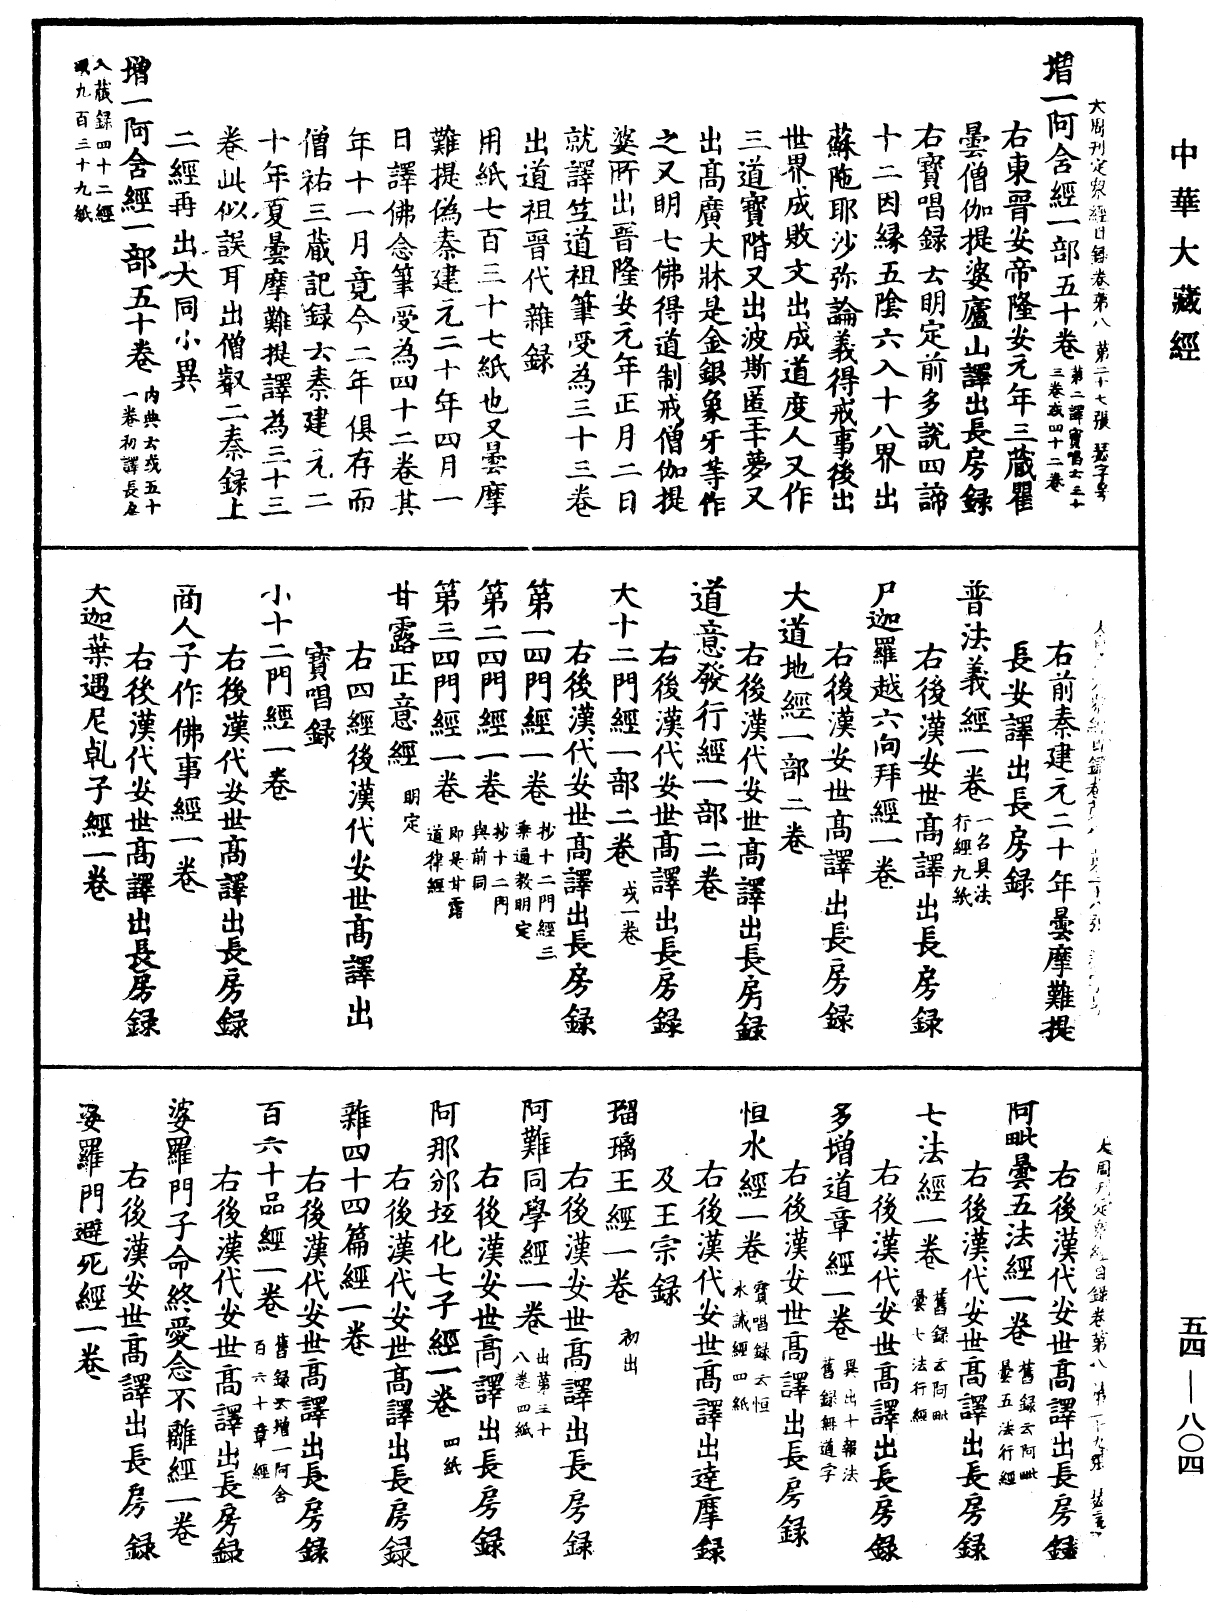 中華大藏經
五四—八〇四
大周刊定衆經目錄卷第八 第二十七張
增一阿含經一部五十卷 第二譯寶唱云三十三卷或四十二卷
右東晉安帝隆安元年三藏瞿
曇僧伽提婆廬山譯出長房録
右寶唱録云明定前多說四諦
十二因緣五陰六入十八界出
蘇陁耶沙弥論義得戒事後出
世界成敗文出成道度人又作
三道寶階又出波斯匿王十夢又
出高廣大牀是金銀象牙等作
之又明七佛得道制戒僧伽提
婆所出晉隆安元年正月二日
就譯竺道祖筆受為三十三卷
出道祖晉代雜録
用紙七百三十七紙也又曇摩
難提偽秦建元二十年四月一
日譯佛念筆受為四十二卷其
年十一月竟今二年俱存而
僧祐三藏記録云秦建元二
十年夏曇摩難提譯為三十三
卷此似誤耳出僧叡二秦録上
二經再出大同小異
增一阿含經一部五十卷 內典云或五十一卷初譯長房
入藏録四十二經
九百三十九紙
右前秦建元二十年曇摩難提
長安譯出長房録
普法義經一卷 一名具法行經九紙
右後漢安世高譯出長房録
尸迦羅越六向拜經一卷
右後漢安世高譯出長房録
大道地經一部二卷
右後漢代安世高譯出長房録
道意發行經一部二卷
右後漢代安世高譯出長房録
大十二門經一部二卷 或一卷
右後漢代安世高譯出長房録
第一四門經一卷 抄十二門經三乘遍教明定
第二四門經一卷 抄十二門與前同
第三四門經一卷 即是甘露道律經
甘露正意經 明定
右四經後漢代安世高譯出
寶唱録
小十二門經一卷
右後漢代安世高譯出長房録
商人子作佛事經一卷
右後漢代安世高譯出長房録
大迦葉遇尼乹子經一卷
右後漢代安世高譯出長房録
阿毗曇五法經一卷 舊録云阿毗曇五法行經
右後漢代安世高譯出長房録
七法經一卷 舊録云阿毗曇七法行經
右後漢代安世高譯出長房録
多增道章經一卷 異出十報法舊録無道字
右後漢安世高譯出長房録
恒水經一卷 寶唱録云恒水誡經四紙
右後漢代安世高譯出達摩録
及王宗録
瑠璃王經一卷 初出
右後漢安世高譯出長房録
阿難同學經一卷 出第三十八卷四紙
右後漢安世高譯出長房録
阿那邠坻化七子經一卷 四紙
右後漢代安世高譯出長房録
雜四十四篇經一卷
右後漢代安世高譯出長房録
百六十品經一卷 舊録云增一阿含百六十章經
右後漢代安世高譯出長房録
婆羅門子命終愛念不離經一卷
右後漢安世高譯出長房録
婆羅門避死經一卷